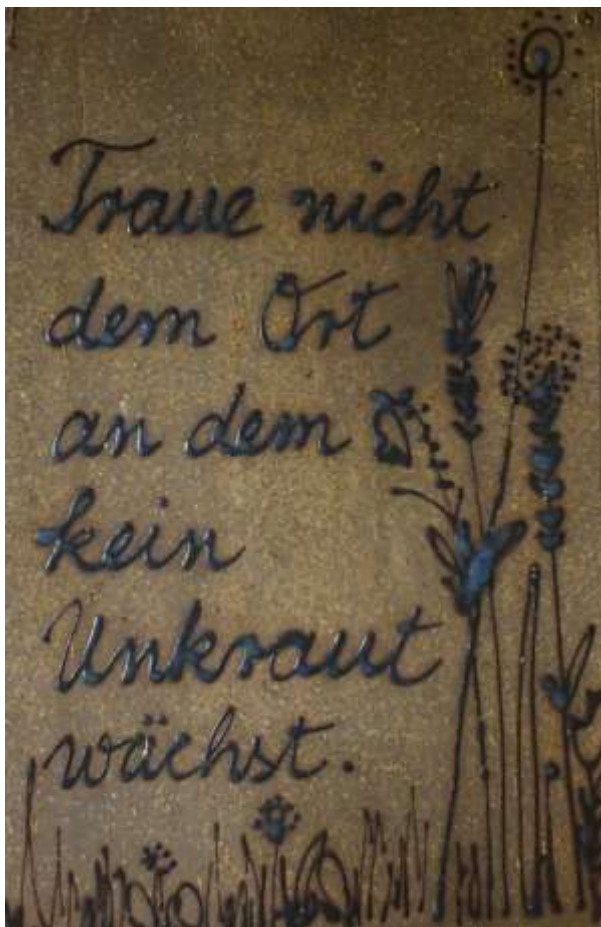 Traue nicht
dem Ort
an dem
kein
Unkraut
wächst.